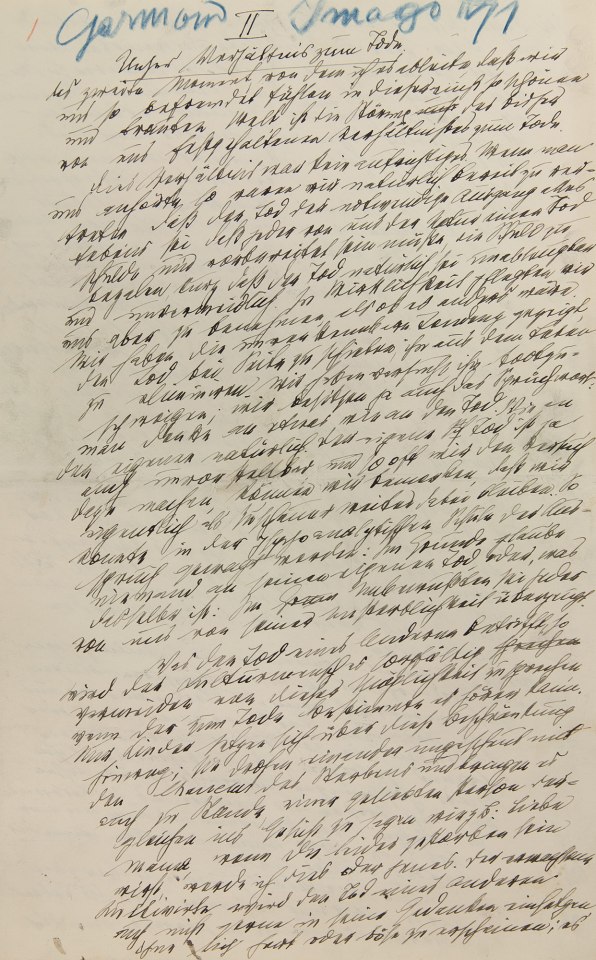 Garmond Imago
II
Unser Verhältnis zum Tode.
Das zweite Moment von dem ich es ableite daß wir
uns so befremdet fühlen in dieser einst so schönen
und trauten Welt ist die Störung des bisher
von uns festgehaltenen Verhältnisses zum Tode.
Dies Verhältnis war kein aufrichtiges. Wenn man
uns anhörte, so waren wir natürlich bereit zu ver-
treten daß der Tod der notwendige Ausgang alles
Lebens sei daß jeder von uns der Natur einen Tod
schulde und vorbereitet sein müsse die Schuld zu
bezalen kurz daß der Tod natürlich sei unableugbar
und unvermeidlich. In Wirklichkeit pflegten wir
uns aber zu benehmen als ob es anders wäre.
Wir haben die unverkennbare Tendenz gezeigt,
den Tod bei Seite zu schieben ihn aus dem Leben
zu eliminiren, wir haben versucht ihn todtzu-
schweigen; wir besitzen ja auch das Sprüchwort:
man denke an etwas wie an den Tod. Wie an
den eigenen natürlich. Der eigene Tod ist ja
auch unvorstellbar und so oft wir den Versuch
dazu machen können wir bemerken daß wir
eigentlich als Zuschauer weiter dabei bleiben. So
konnte in der psychoanalytischen Schule der Aus-
spruch gewagt werden: Im Grunde glaube
niemand an seinen eigenen Tod oder, was
dasselbe ist: Im Unbewußten sei jeder
von uns von seiner Unsterblichkeit überzeugt.
Was den Tod eines Anderen betrifft, so
wird der Kulturmensch es sorgfältig
vermeiden von dieser Möglichkeit zu sprechen
wenn der zum Tode bestimmte es hören kann.
Nur Kinder setzen sich über diese Beschränkung
hinweg; sie drohen einander ungescheut mit
den Chancen des Sterbens und bringen es
auch zu Stande einer geliebten Person der-
gleichen ins Gesicht zu sagen wie z. B.: Liebe
Mama, wenn Du leider gestorben sein
wirst, werde ich dies oder jenes. Der erwachsene
Kultivirte wird den Tod eines Anderen
auch nicht gerne in seine Gedanken
ohne sich hart oder böse zu erscheinen; es